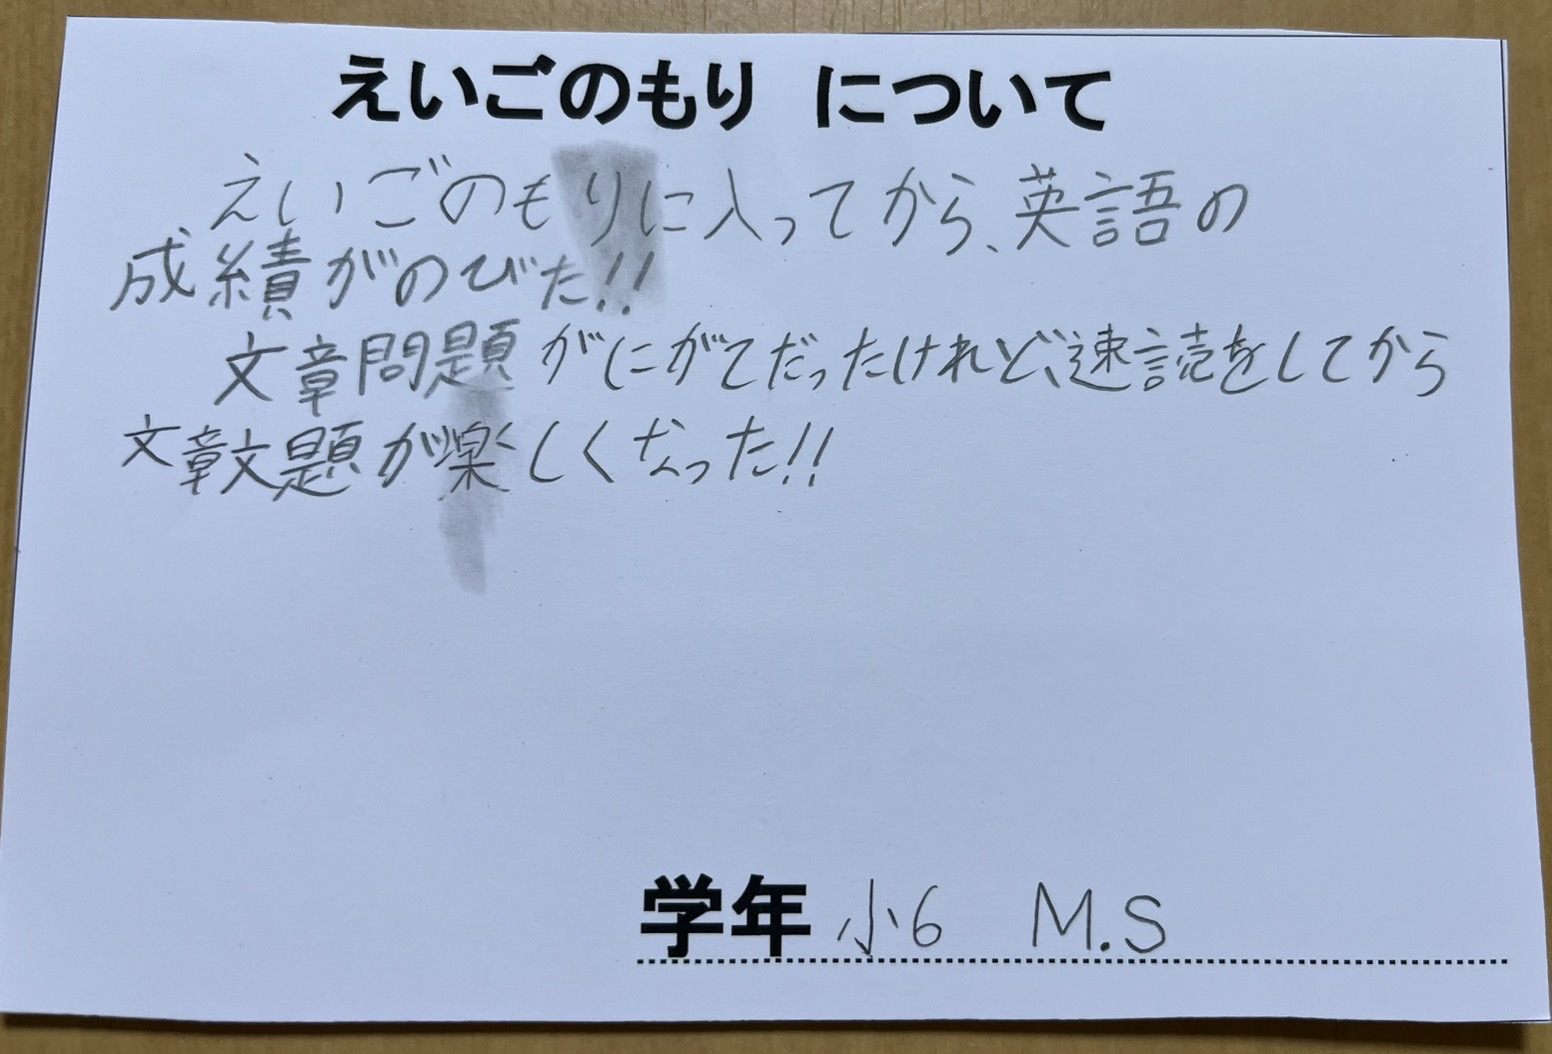 えいごのもり について
えいごのもりに入ってから、英語の
成績がのびた!!
文章問題がにがてだったけれど、速読をしてから
文章文題が楽しくなった!!
学年 小6 M.S